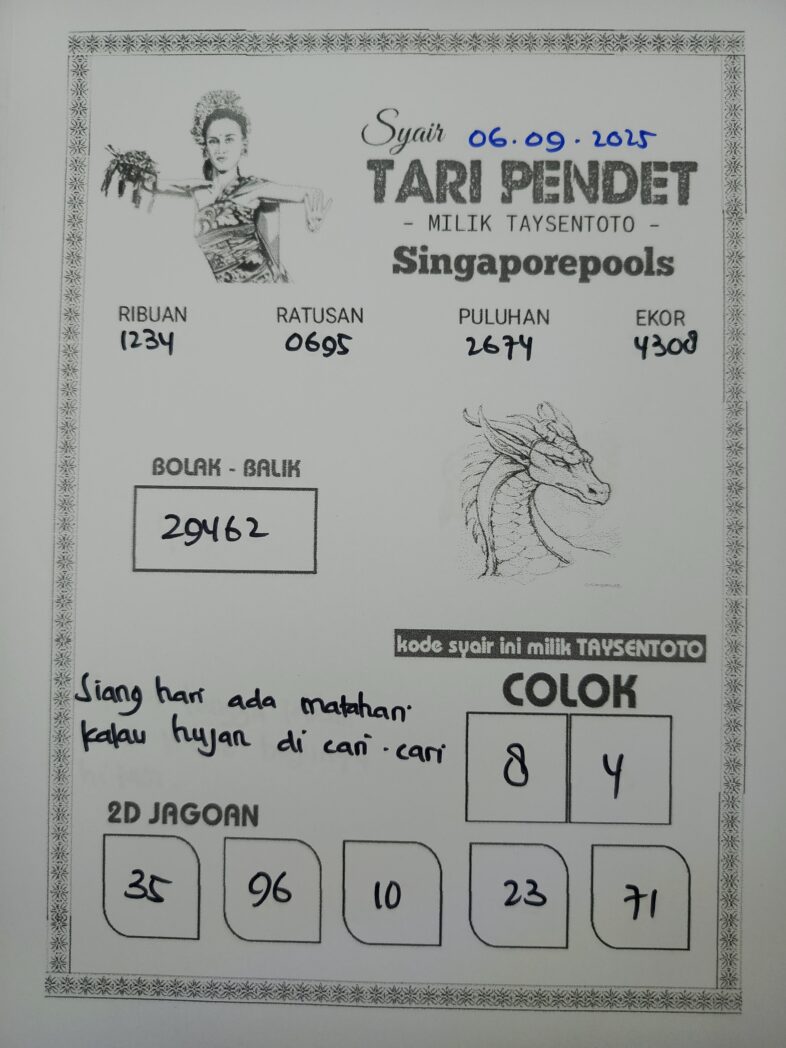 Syair 06.09.2025
TARI PENDET
- MILIK TAYSENTOTO -
Singaporepools
RIBUAN RATUSAN PULUHAN EKOR
1234 0695 2674 4308
BOLAK - BALIK
29462
kode syair ini milik TAYSENTOTO
Siang hari ada matahari
kalau hujan di cari-cari
COLOK
8 4
2D JAGOAN
35 96 10 23 71